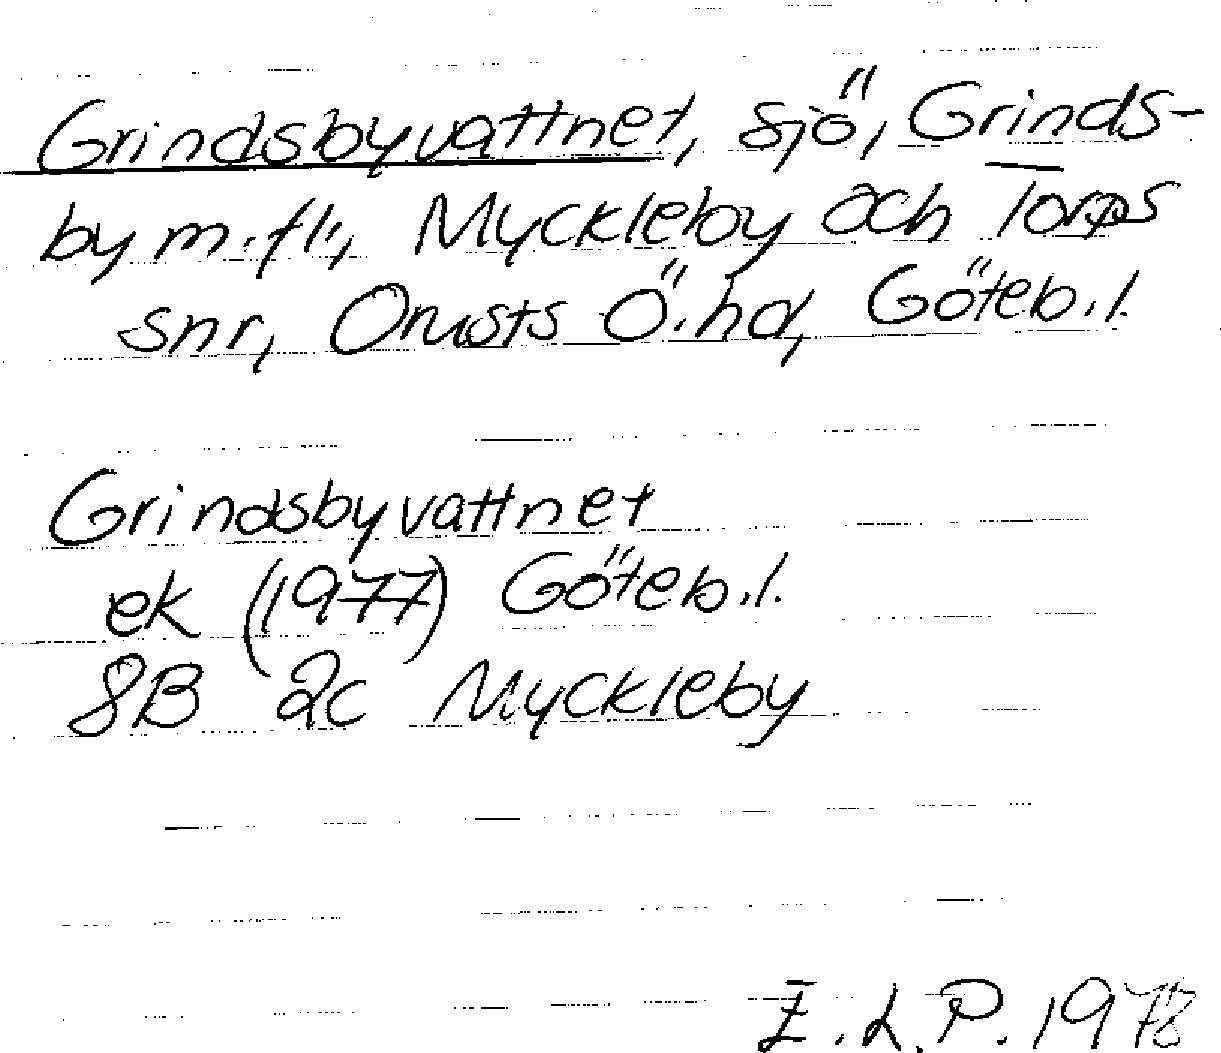 Grindsbyvattnet, sjö, Grinds-
by m.fl., Myckleby och Torps
snr, Orusts Ö. hd, Göteb.l.
Grindsbyvattnet
ek (1977) Göteb.l.
8B 2c Myckleby
E.L.P. 1978